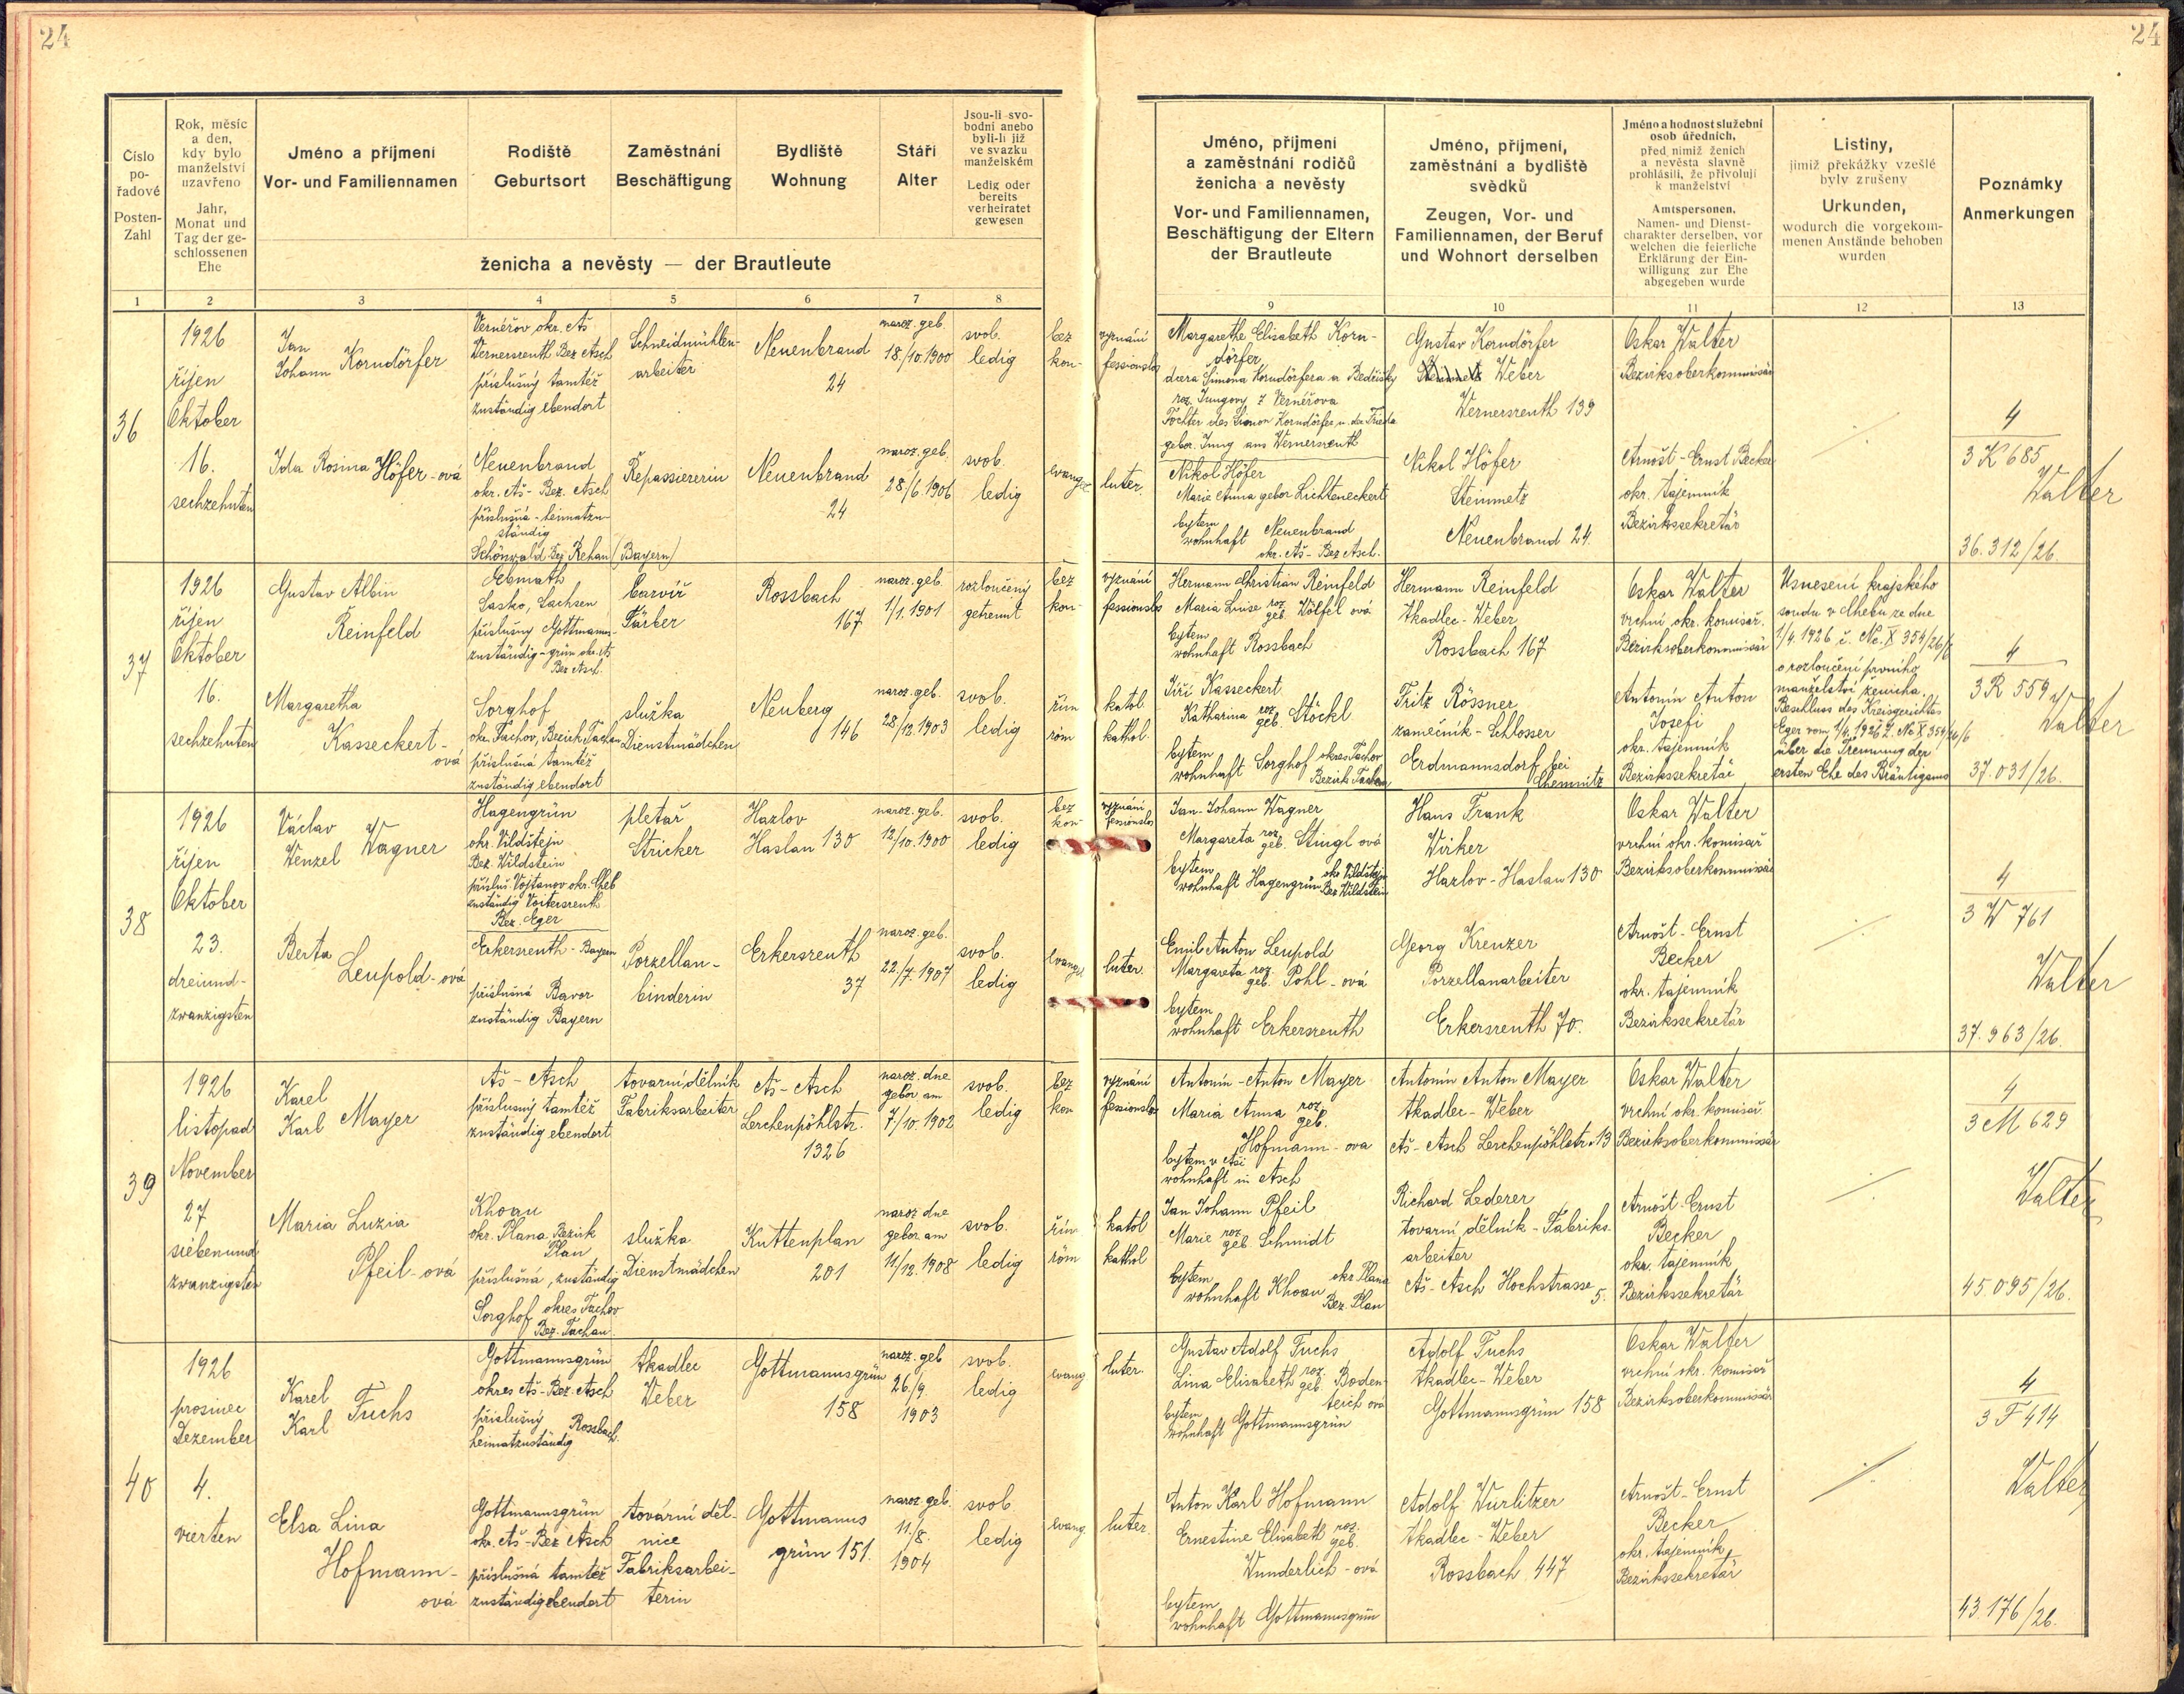 24
24
Číslo
po-
řadové
Posten-
Zahl
Rok, měsíc
a den,
kdy bylo
manželství
uzavřeno
Jahr,
Monat und
Tag der ge-
schlossenen
Ehe
Jméno a příjmení
Vor- und Familiennamen
Rodiště
Geburtsort
Zaměstnání
Beschäftigung
Bydliště
Wohnung
Stáří
Alter
Jsou-li svo-
bodni anebo
byli-li již
ve svazku
manželském
Ledig oder
bereits
verheiratet
gewesen
ženicha a nevěsty — der Brautleute
Jméno, příjmení
a zaměstnání rodičů
ženicha a nevěsty
Vor- und Familiennamen,
Beschäftigung der Eltern
der Brautleute
Jméno, příjmení,
zaměstnání a bydliště
svědků
Zeugen, Vor- und
Familiennamen, der Beruf
und Wohnort derselben
Jméno a hodnost služební
osob úředních,
před nimiž ženich
a nevěsta slavně
prohlásili, že přivolují
k manželství
Amtspersonen,
Namen- und Dienst-
charakter derselben, vor
welchen die feierliche
Erklärung der Ein-
willigung zur Ehe
abgegeben wurde
Listiny,
jimiž překážky vzešlé
byly zrušeny
Urkunden,
wodurch die vorgekom-
menen Anstände behoben
wurden
Poznámky
Anmerkungen
1 2 3 4 5 6 7 8 9 10 11 12 13
36
1926
říjen
Oktober
16.
sechzehnten
Jan
Johann Korndörfer
Vernéřov okr. Aš
Wernersreuth Bez Asch
příslušný tamtéž
zuständig ebendort
Schneidmühlen-
arbeiter
Neuenbrand
24
naroz. geb.
18./10. 1900
svob.
ledig
bez vyznání
kon- fessionslos
Margarethe Elisabeth Korn-
dörfer
dcera Šimona Korndörfera a Bedřišky
roz. Jungovy z Vernéřova
Tochter des Simon Korndörfer u. der Frieda
gebor. Jung aus Wernersreuth
Gustav Korndörfer
Weber
Wernersreuth 139
Oskar Walter
Bezirksoberkommissär
4
3 K 685
Walter
36.312/26.
Ida Rosina Höfer-ová
Neuenbrand
okr. Aš - Bez. Asch
příslušná - heimatzu-
ständig
Schönwald Bez Rehau (Bayern)
Repassiererin
Neuenbrand
24
naroz. geb.
28/6. 1906
svob.
ledig
evangel. luter.
Nikol Höfer
Marie Anna gebor Lichteneckert
bytem
wohnhaft Neuenbrand
okr. Aš - Bez Asch.
Nikol Höfer
Steinmetz
Neuenbrand 24.
Arnošt - Ernst Becker
okr. tajemník
Bezirkssekretär
37
1926
říjen
Oktober
16.
sechzehnten
Gustav Albin
Reinfeld
Gebmath
Sasko, Sachsen
příslušný Gottmanns-
zuständig - grün okr. Aš
Bez Asch.
barvíř
Färber
Rossbach
167
naroz. geb.
1/1. 1901
rozloučený
getrennt
bez vyznání
kon- fessionslos
Hermann Christian Reinfeld
Maria Luise roz. geb. Wölfel ová
bytem
wohnhaft Rossbach
Hermann Reinfeld
tkadlec - Weber
Rossbach 167
Oskar Walter
vrchní okr. komisař.
Bezirksoberkommissär
Usnesení krajského
soudu v Chebu ze dne
1/4. 1926 č. Nc. X 354/26/6
o rozloučení prvního
manželství ženicha.
Beschluss des Kreisgerichtes
Eger vom 1/4. 1926 Z. Nc X 354/26/6
über die Trennung der
ersten Ehe des Bräutigams
4
3 R 559
Walter
37.031/26.
Margaretha
Kasseckert-
ová
Sorghof
okr. Tachov, Bezirk Tachau
příslušná tamtéž
zuständig ebendort
služka
Dienstmädchen
Neuberg
146
naroz. geb.
28/12. 1903
svob.
ledig
řím katol.
röm kathol.
Jiří Kasseckert
Katharina roz. geb. Stöckl
bytem
wohnhaft Sorghof okres Tachov
Bezirk Tachau
Fritz Rössner
zámečník - Schlosser
Erdmannsdorf bei
Chemnitz
Antonín Anton
Josefi
okr. tajemník
Bezirkssekretär
38
1926
říjen
Oktober
23.
dreiund-
zwanzigsten
Václav
Wenzel Wagner
Hagengrün
okr. Vildštejn
Bez. Wildstein
příslus. Vojtanov okr. Cheb
zuständig Voitersreuth
Bez. Eger
pletař
Stricker
Hazlov
Haslau 130
naroz. geb.
12/10. 1900
svob.
ledig
bez vyznání
kon- fessionslos
Jan Johann Wagner
Margareta roz. geb. Stingl ová
bytem
wohnhaft Hagengrün okr. Vildštejn
Bez Wildstein
Hans Frank
Wirker
Hazlov - Haslau 130
Oskar Walter
vrchní okr. komisař
Bezirksoberkommissär
4
3 W 761
Walter
37.963/26.
Berta
Leupold-ová
Erkersreuth - Bayern
příslušná Bavor
zuständig Bayern
Porzellan-
binderin
Erkersreuth
37
naroz. geb.
22./7. 1907
svob.
ledig
evangl. luter.
Emil Anton Leupold
Margareta roz. geb. Pohl-ová
bytem
wohnhaft Erkersreuth
Georg Kreuzer
Porzellanarbeiter
Erkersreuth 70.
Arnošt - Ernst
Becker
okr. tajemník
Bezirkssekretär
39
1926
listopad
November
27
siebenund
zwanzigsten
Karel
Karl Mayer
Aš - Asch
příslusný tamtéž
zuständig ebendort
tovarní dělník
Fabriksarbeiter
Aš - Asch
Lerchenpöhlstr.
1326
naroz. dne
gebor am
7/10. 1902
svob.
ledig
bez vyznání
kon fessionslos
Antonín - Anton Mayer
Maria Anna roz. geb.
Hofmann - ova
bytem v Aši
wohnhaft in Asch
Antonín Anton Mayer
tkadlec - Weber
Aš - Asch Lerchenpöhlstr. 13
Oskar Walter
vrchní okr. komisař.
Bezirksoberkommissär
4
3 M 629
Walter
45.095/26.
Maria Luzia
Pfeil-ová
Khoau
okr. Plana Bezirk
Plan
příslušná, zuständig
Sorghof okres Tachov
Bez. Tachau.
služka
Dienstmädchen
Kuttenplan
201
naroz dne
gebor. am
11/12. 1908
svob.
ledig
řím katol
röm kathol
Jan Johann Pfeil
Marie roz. geb. Schmidt
bytem
wohnhaft Khoau okr. Plana
Bez. Plan
Richard Lederer
tovarní dělník - Fabriks-
arbeiter
Aš - Asch Hochstrasse
5.
Arnošt - Ernst
Becker
okr. tajemník
Bezirkssekretär
40
1926
prosinec
Dezember
4.
vierten
Karel
Karl Fuchs
Gottmannsgrün
okres Aš - Bez. Asch
příslušný Rossbach.
heimatzuständig
tkadlec
Weber
Gottmannsgrün
158
naroz. geb
26./9.
1903
svob.
ledig
evang luter.
Gustav Adolf Fuchs
Lina Elisabeth roz. geb. Boden-
teich ová
bytem
wohnhaft Gottmannsgrün
Adolf Fuchs
tkadlec - Weber
Gottmannsgrün 158
Oskar Walter
vrchní okr. komisař
Bezirksoberkommissär
4
3 F 414
Walter
43.176/26.
Elsa Lina
Hofmann-
ová
Gottmannsgrün
okr. Aš - Bez Asch
příslušná tamtéž
zuständig ebendort
tovární děl-
nice
Fabriksarbei-
terin
Gottmanns
grün 151.
naroz. geb.
11./8.
1904
svob
ledig
evang. luter.
Anton Karl Hofmann
Ernestine Elisabeth roz. geb.
Wunderlich - ová
bytem
wohnhaft Gottmannsgrün
Adolf Wurlitzer
tkadlec - Weber
Rossbach 447
Arnošt - Ernst
Becker
okr. tajemník
Bezirkssekretär